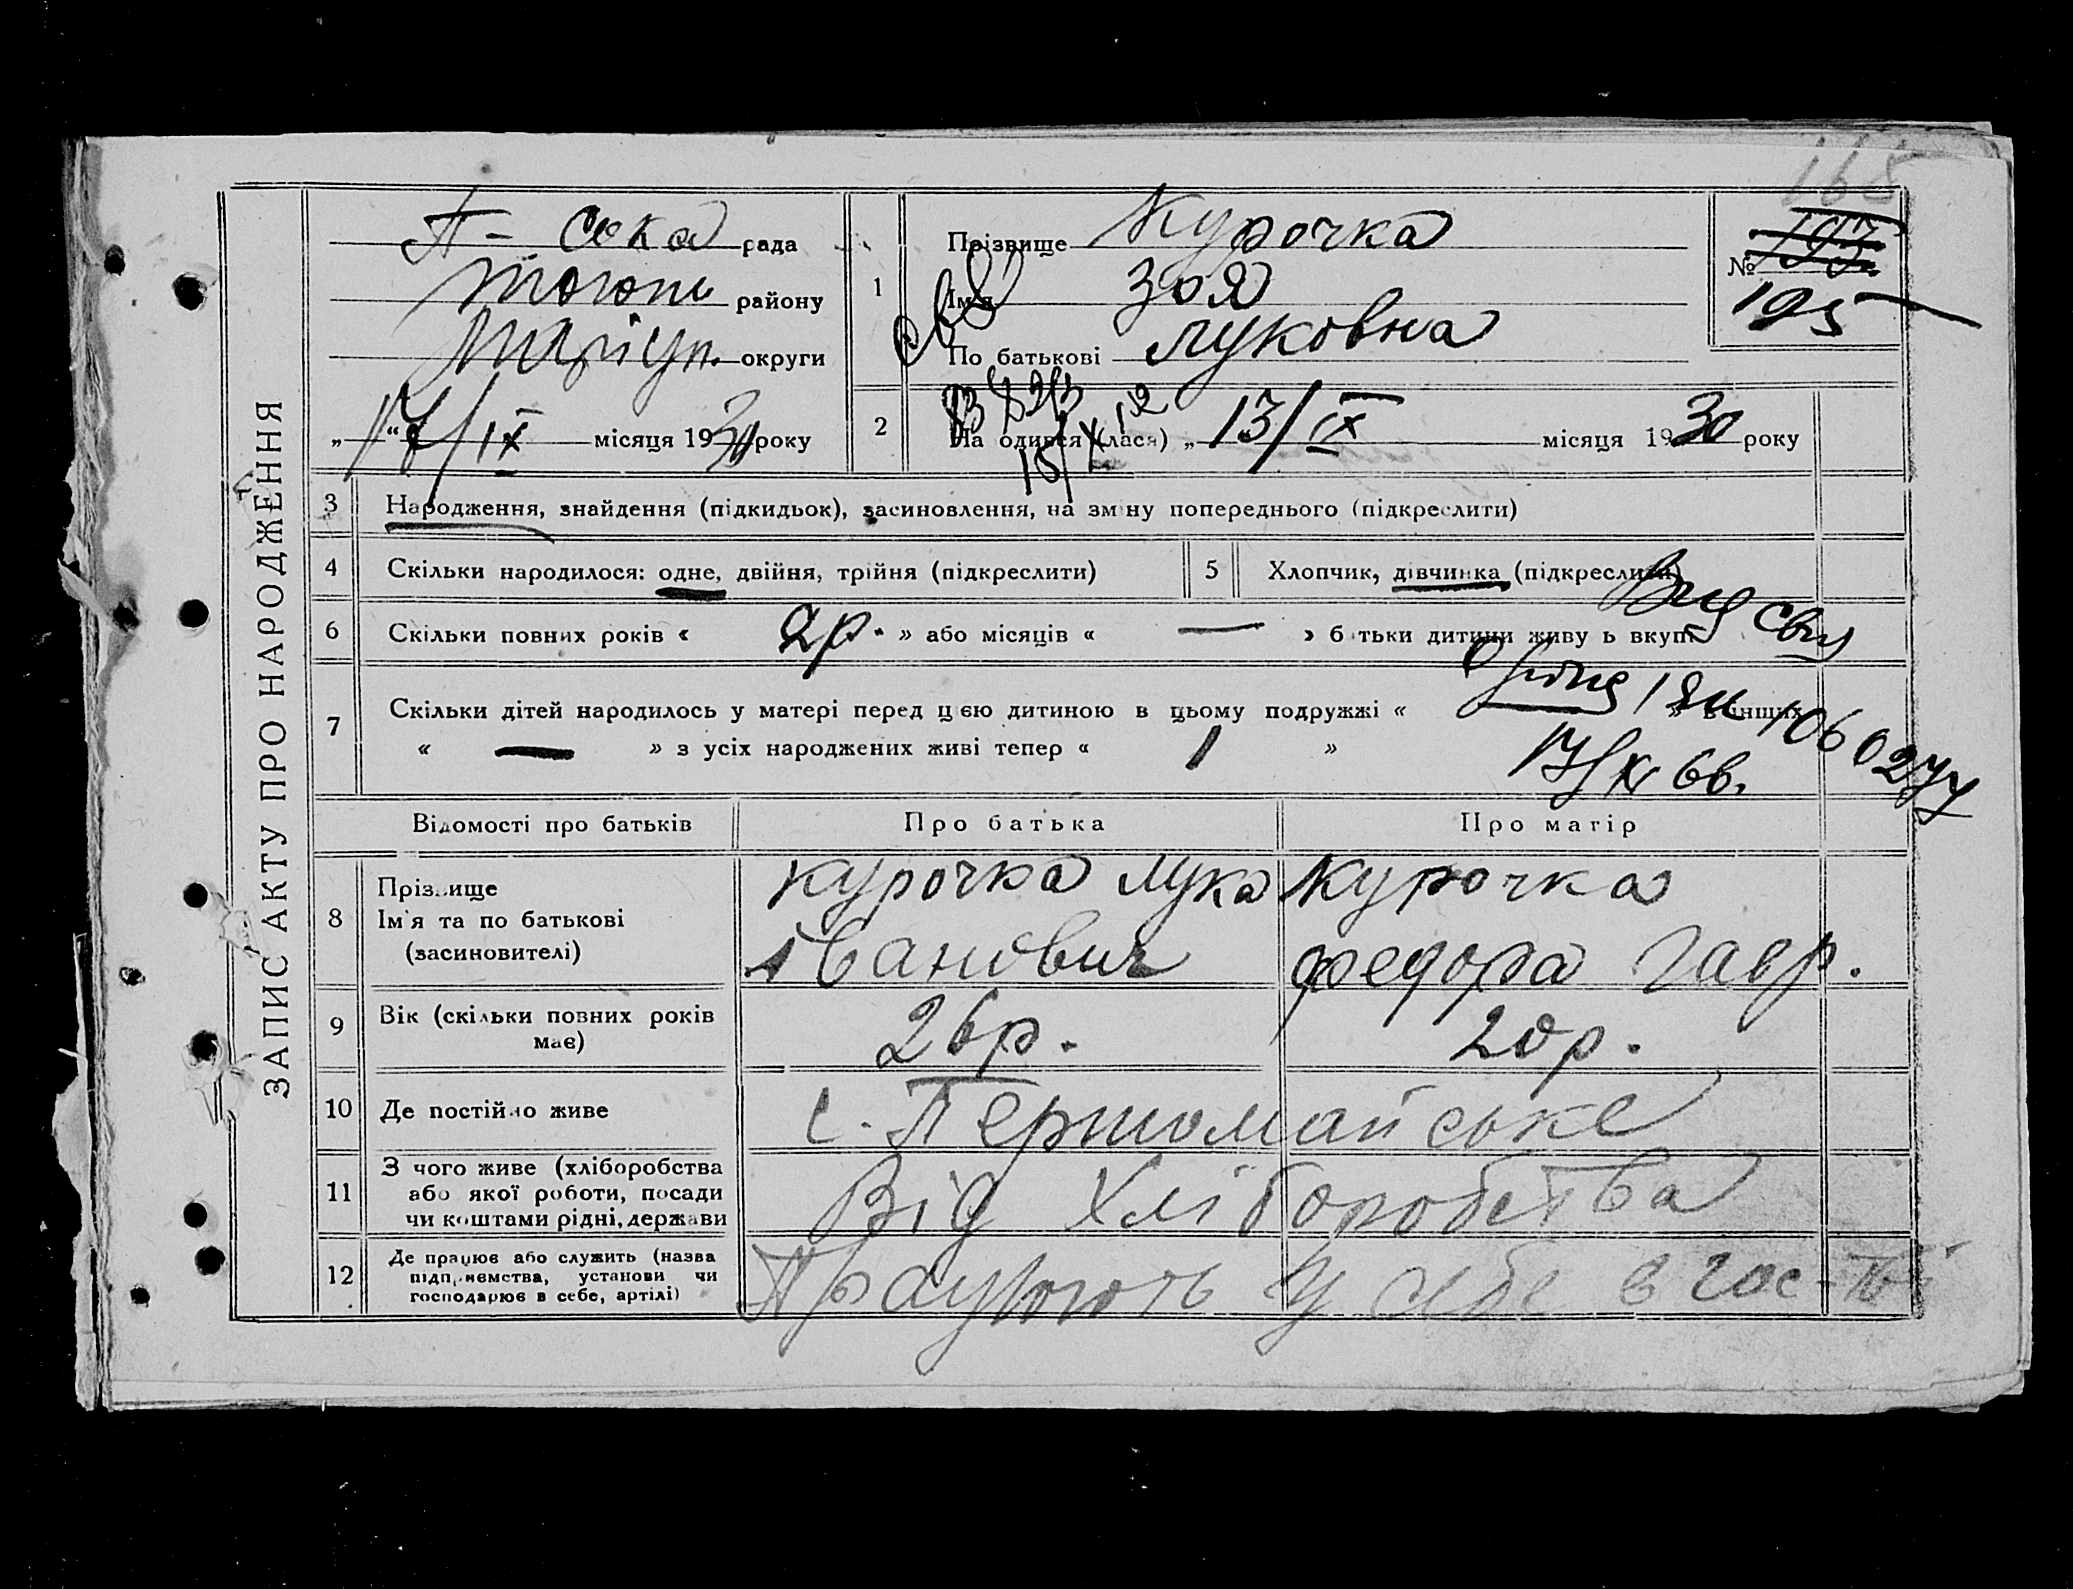 165
ЗАПИС АКТУ ПРО НАРОДЖЕННЯ
П- ська рада
району
Маріуп. округи
„17“/IX місяця 1930 року
1
Прізвище Курочка
Ім'я Зоя
По батькові Луковна
№ 193
195
2
На одився (лася) „ 13/IX місяця 1930 року
3 Народження, знайдення (підкидьок), засиновлення, на зміну попереднього (підкреслити)
4 Скільки народилося: одне, двійня, трійня (підкреслити)
5 Хлопчик, дівчинка (підкреслити)
6 Скільки повних років « 2р. » або місяців « — » батьки дитини живуть вкупі
7 Скільки дітей народилось у матері перед цією дитиною в цьому подружжі « » в інших
« — » з усіх народжених живі тепер « 1 »
17/X 66.
Відомості про батьків
Про батька
Про матір
8
Прізвище
Ім'я та по батькові
(засиновителі)
Курочка Лука
Іванович
Курочка
Федора Гавр.
9 Вік (скільки повних років має)
26р.
20р.
10 Де постійно живе
с. Першомайське
11 З чого живе (хліборобства
або якої роботи, посади
чи коштами рідні, держави
Від Хліборобства
12 Де працює або служить (назва
підприємства, установи чи
господарює в себе, артілі)
Працюють у себе в гос-ті